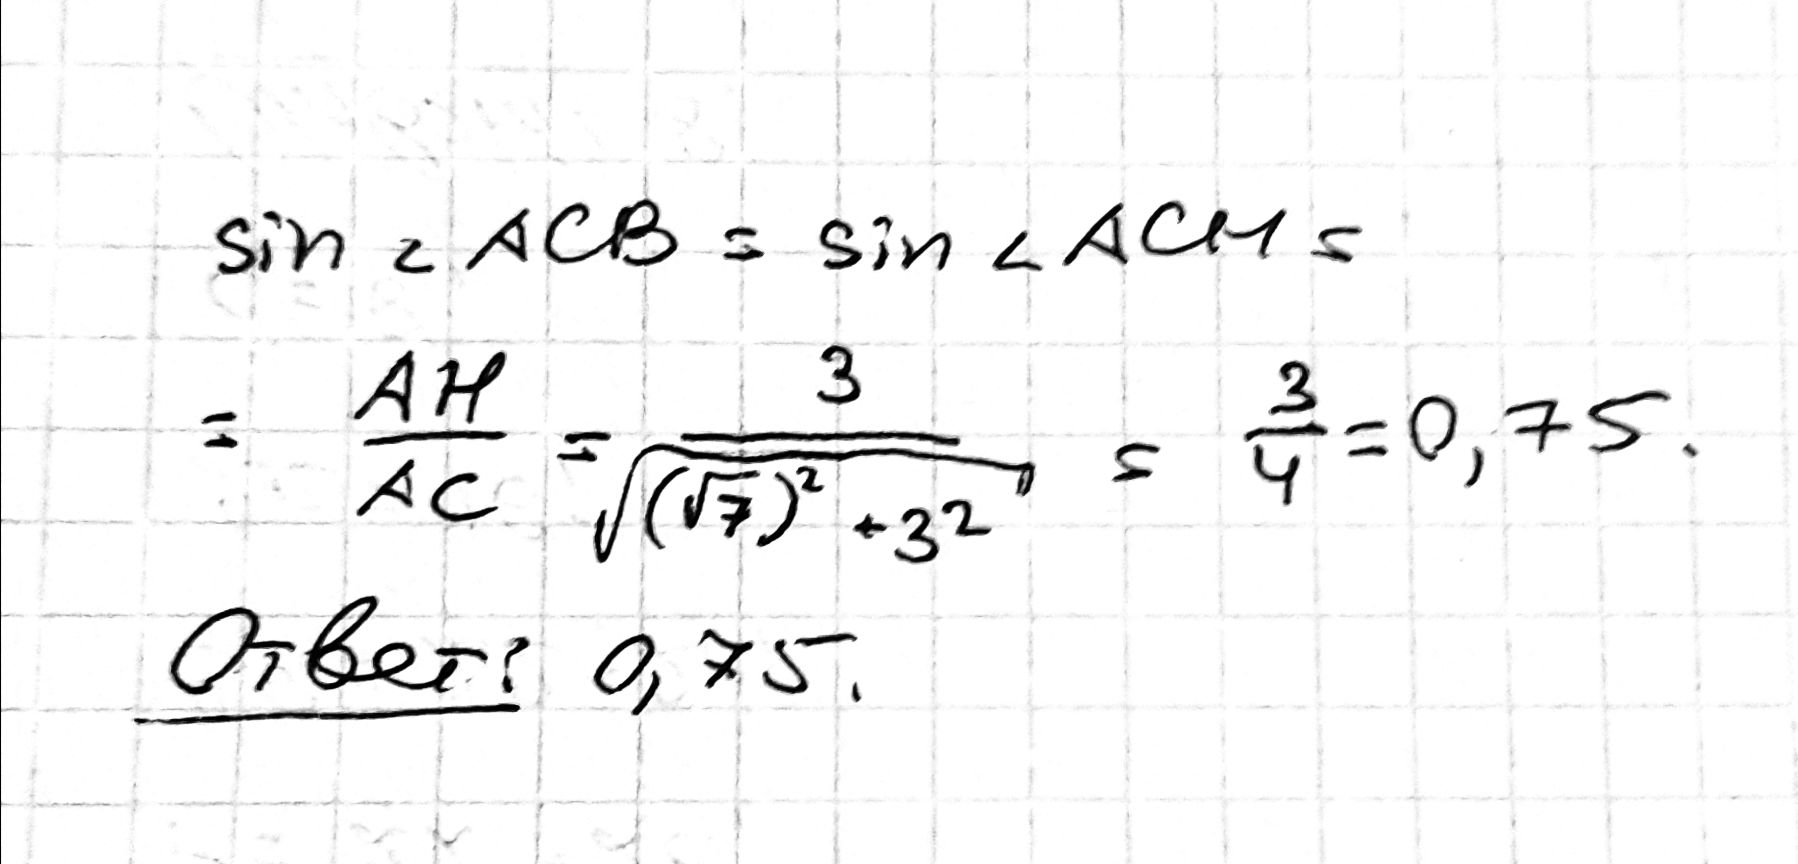 sin ∠ ACB = sin ∠ ACH =
= AH/AC = 3/√((√7)² + 3²) = 3/4 = 0,75.
Ответ: 0,75.